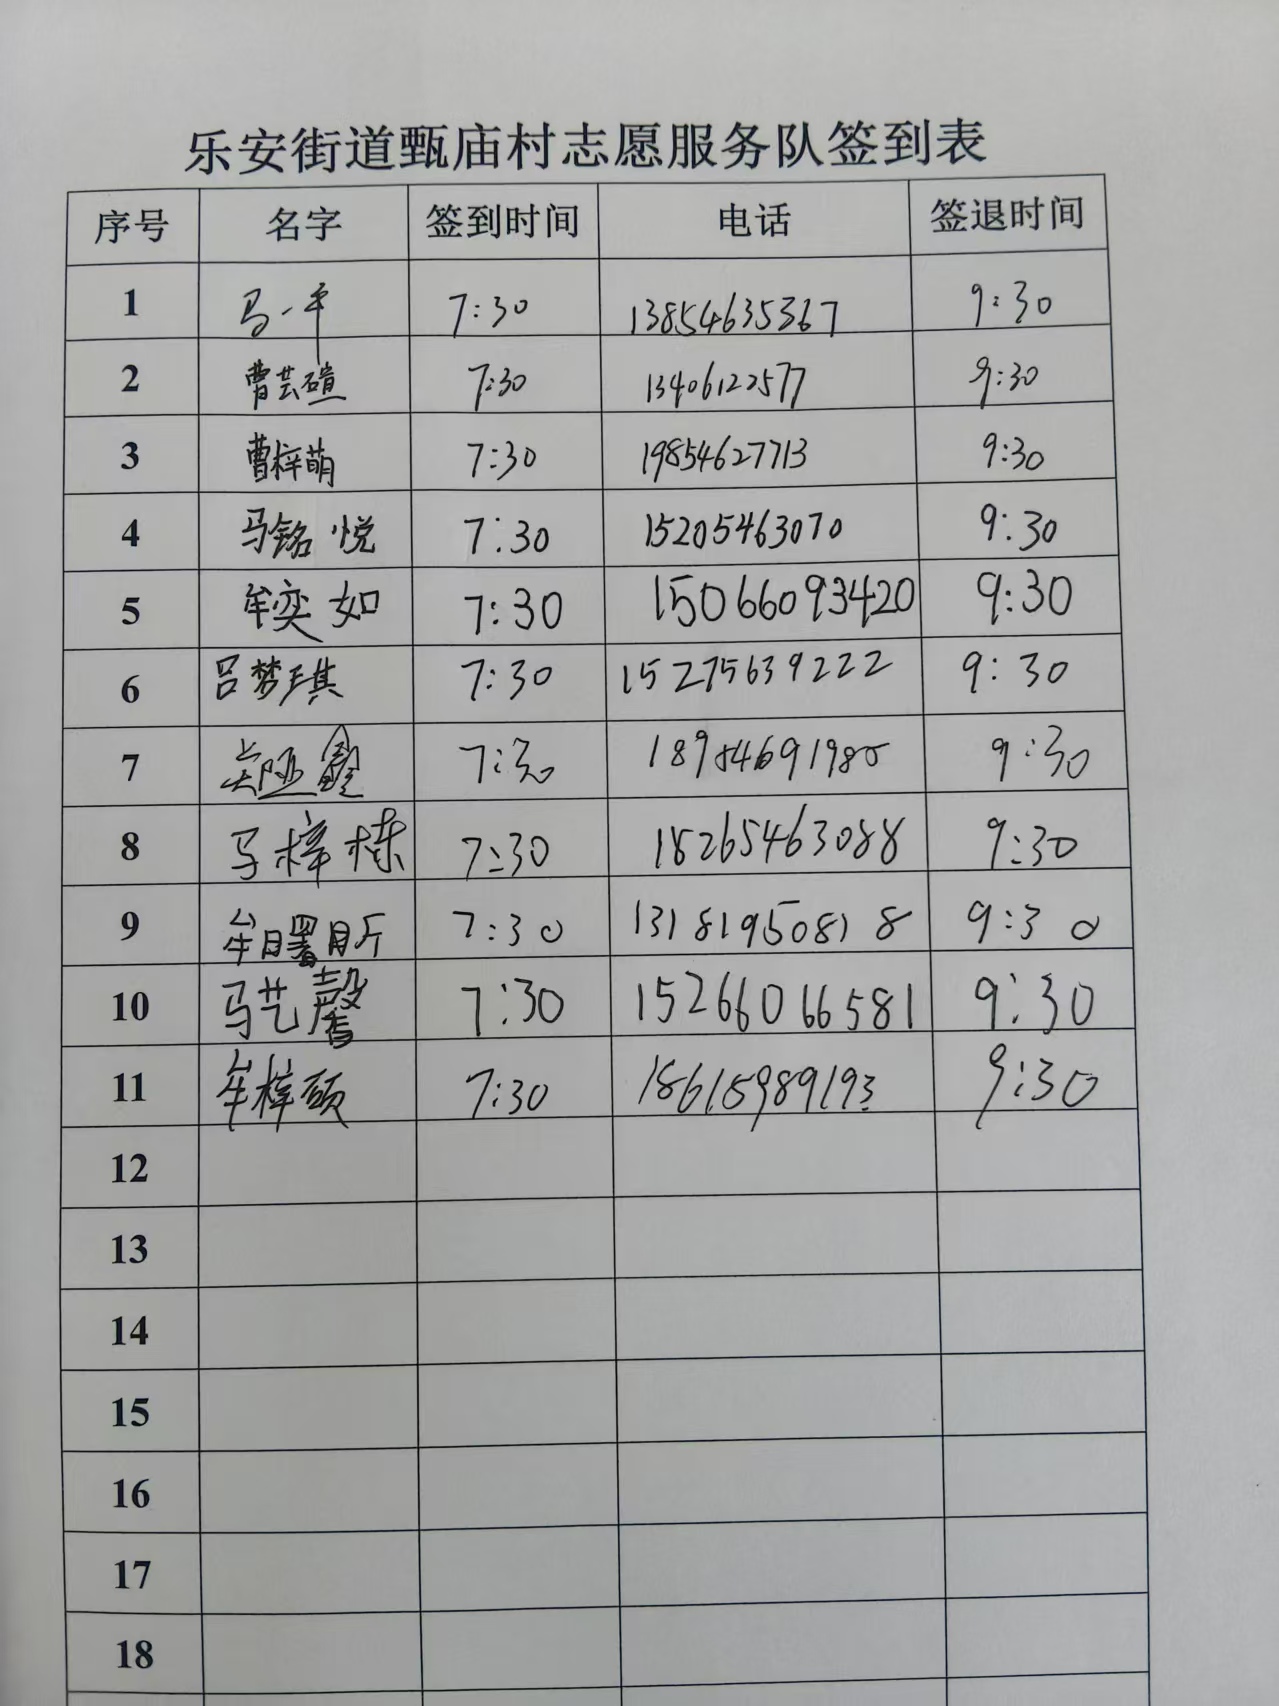 乐安街道甄庙村志愿服务队签到表
序号 名字 签到时间 电话 签退时间
1 马一平 7:30 13854635367 9:30
2 曹芸碹 7:30 13406122577 9:30
3 曹梓萌 7:30 19854627713 9:30
4 马铭悦 7:30 15205463070 9:30
5 牟奕如 7:30 15066093420 9:30
6 吕梦琪 7:30 15275639222 9:30
7 7:30 18954691985 9:30
8 马梓栋 7:30 18265463088 9:30
9 牟曙昕 7:30 13181950818 9:30
10 马艺馨 7:30 15266066581 9:30
11 牟梓硕 7:30 18615989193 9:30
12
13
14
15
16
17
18